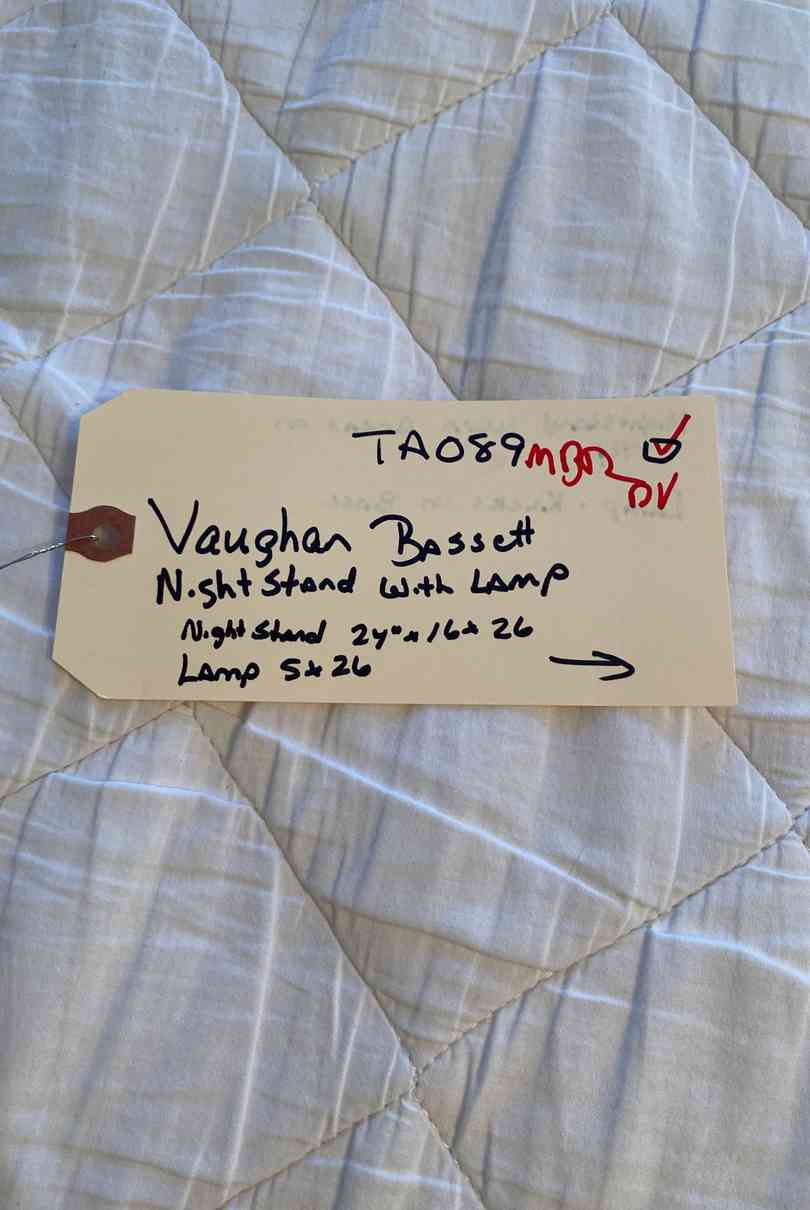 TA089 MBR
DV
Vaughan Bassett
NightStand with LAmp
NightStand 24" x 16 x 26
LAmp 5 x 26 →